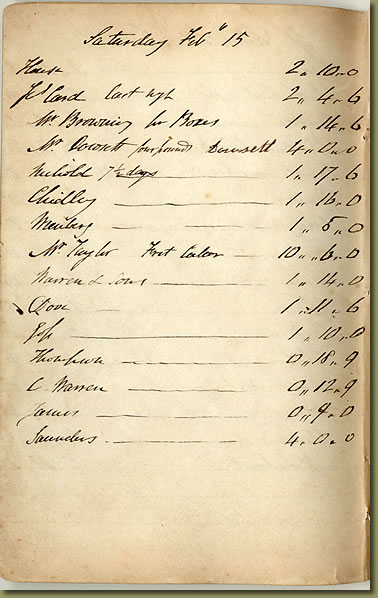 Saturday Feb" 15
House 2 " 10 " 0
Card Cart 2 " 4 " 6
Mr Browning for Boxes 1 " 14 " 6
Mr Dowsett four pounds Dowsett 4 " 0 " 0
7½ days 1 " 17 " 6
Chidley 1 " 16 " 0
1 " 5 " 0
Mr Taylor 10 " 6 " 0
Warren & Sons 1 " 14 " 0
Dove 1 " 11 " 6
1 " 10 " 0
Thompson 0 " 18 " 9
C Warren 0 " 12 " 9
James 0 " 9 " 0
Saunders 4 " 0 " 0